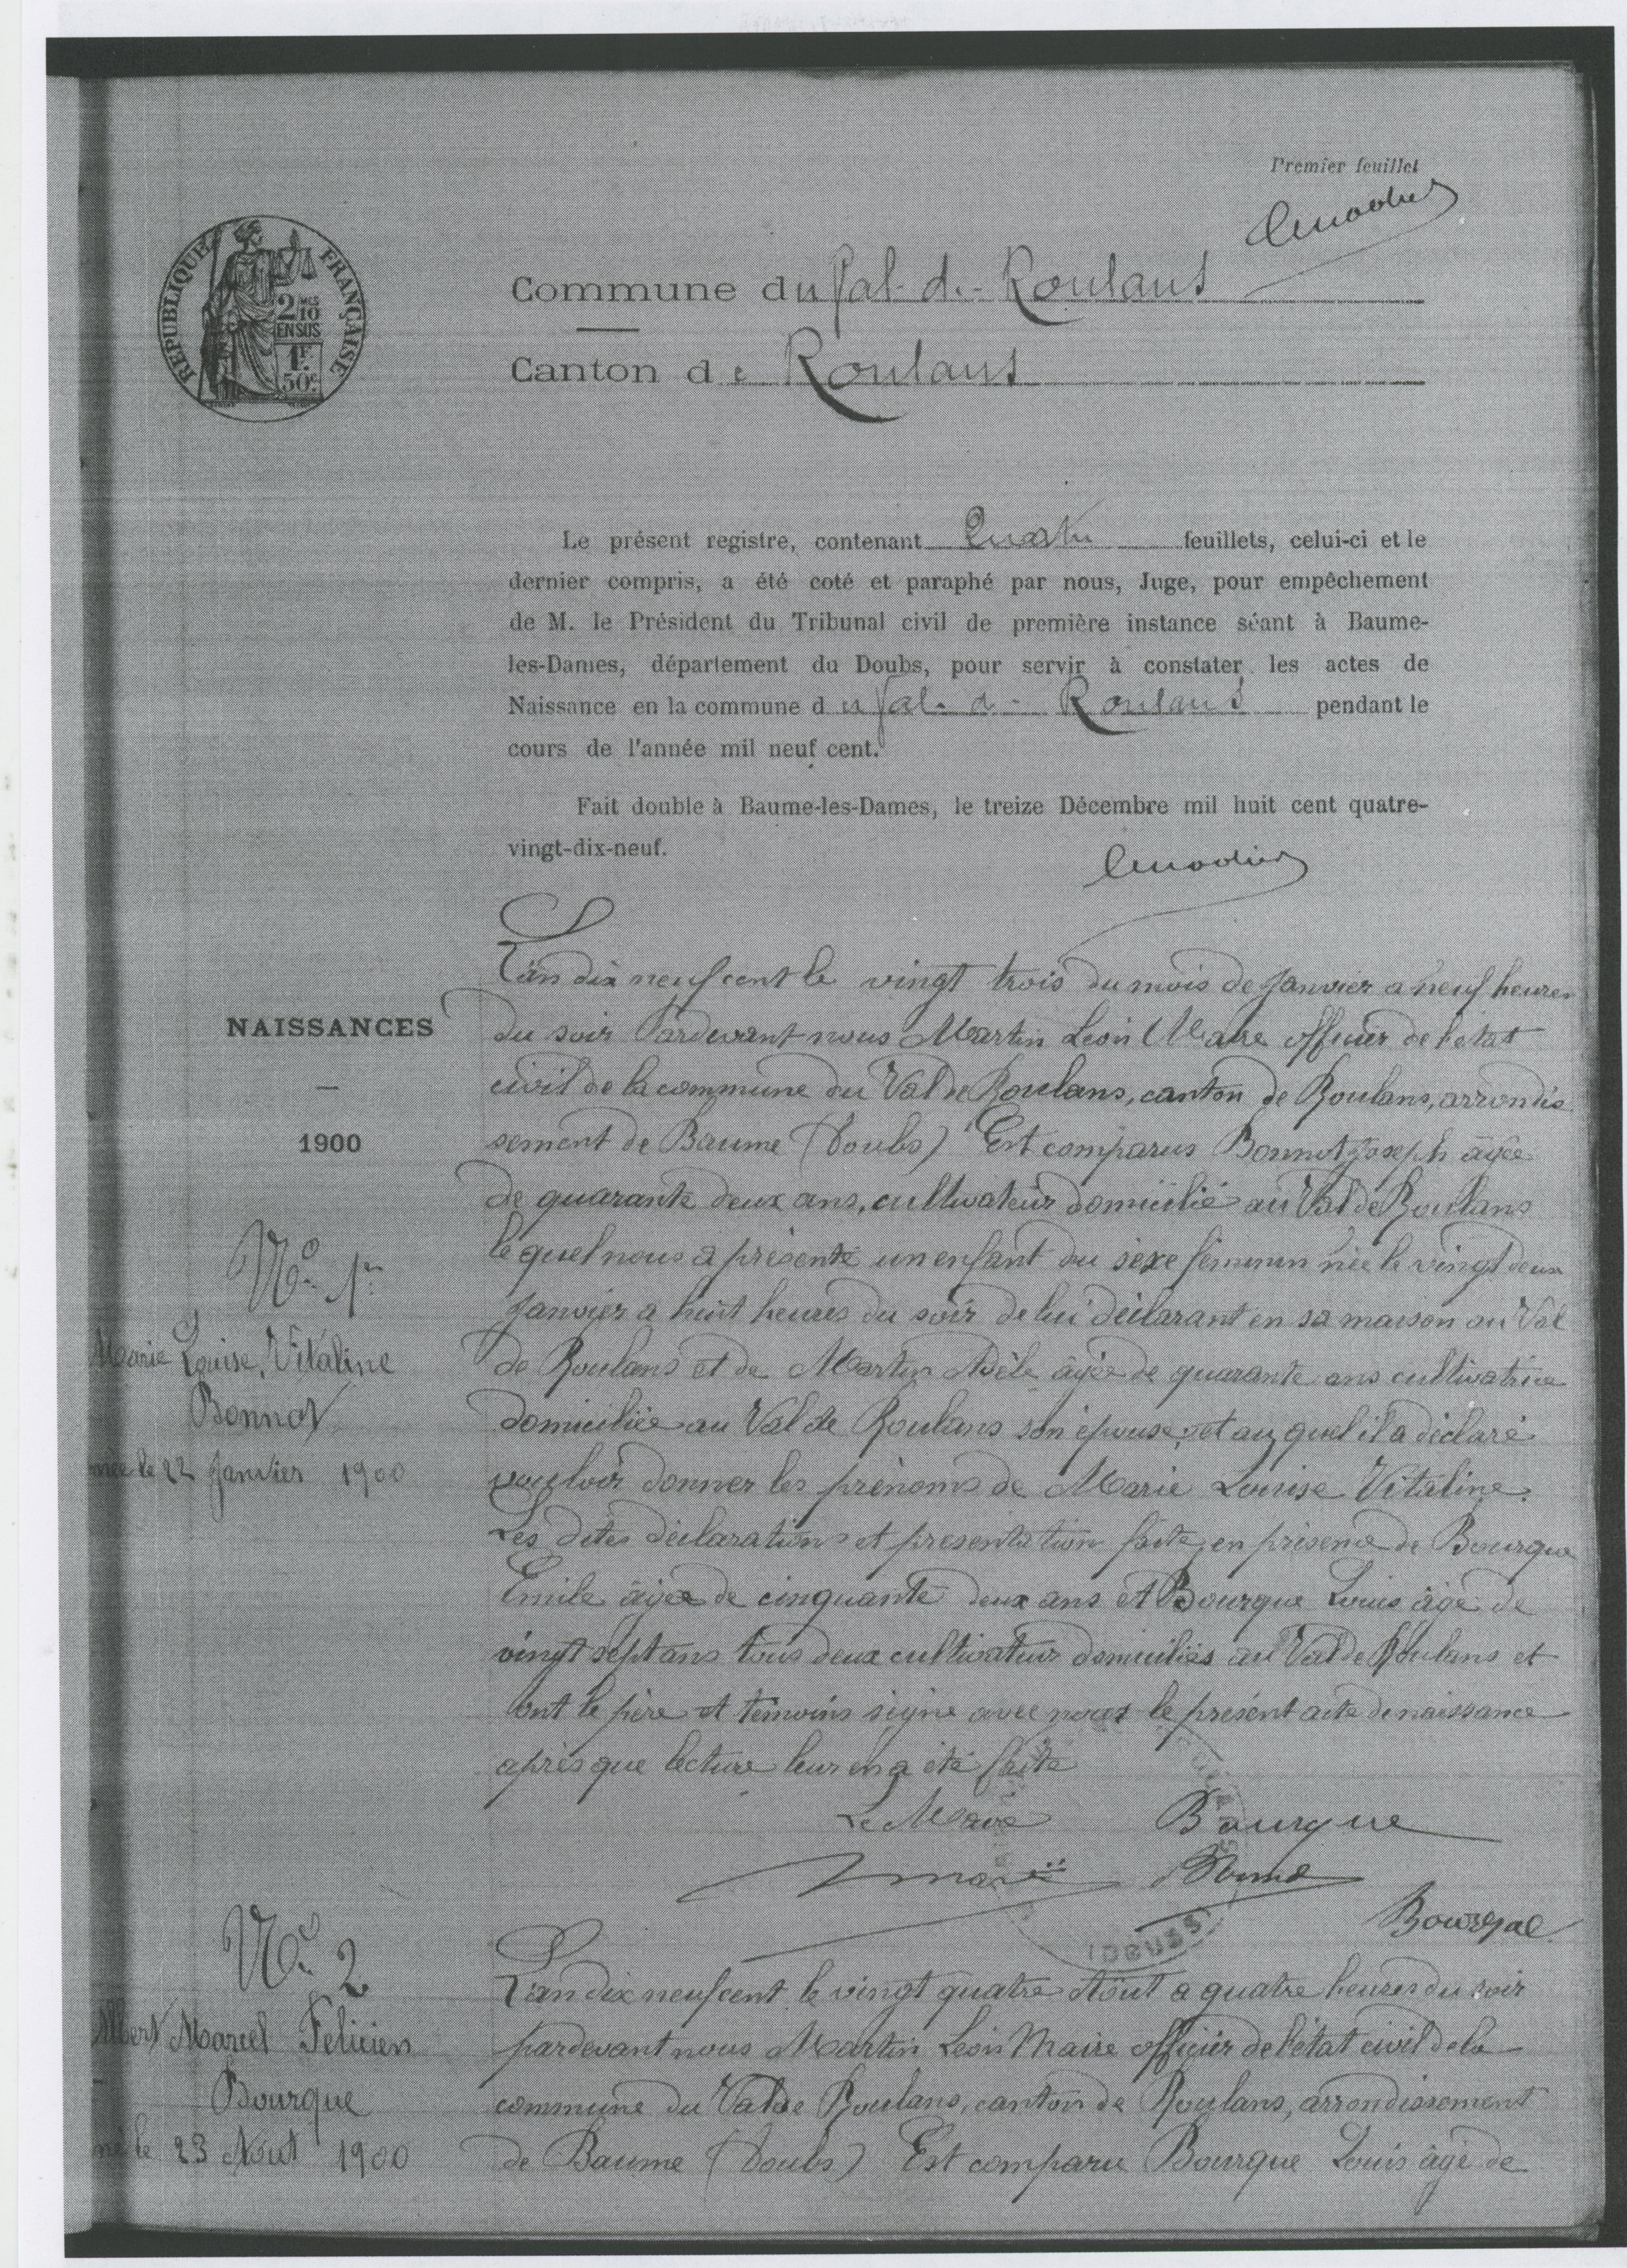 Premier feuillet
RÉPUBLIQUE FRANÇAISE
2 MES
10
EN SUS
1F.
50c.
Commune du Val-de-Roulans
Canton de Roulans
Le présent registre, contenant Quatre feuillets, celui-ci et le
dernier compris, a été coté et paraphé par nous, Juge, pour empêchement
de M. le Président du Tribunal civil de première instance séant à Baume-
les-Dames, département du Doubs, pour servir à constater les actes de
Naissance en la commune du Val-de-Roulans pendant le
cours de l'année mil neuf cent.
Fait double à Baume-les-Dames, le treize Décembre mil huit cent quatre-
vingt-dix-neuf.
NAISSANCES
1900
No 1er
Marie Louise, Vitaline
Bonnot
née le 22 Janvier 1900
L'an dix neuf cent le vingt trois du mois de Janvier a neuf heures
du soir Pardevant nous Martin Léon Maire officier de l'état
civil de la commune du Val de Roulans, canton de Roulans, arrondis
sement de Baume (Doubs) Est comparus Bonnot Joseph âgée
de quarante deux ans, cultivateur domicilié au Val de Roulans
le quel nous a présenté un enfant du sexe féminin née le vingt deux
Janvier a huit heures du soir de lui déclarant en sa maison au Val
de Roulans et de Martin Adèle âgée de quarante ans cultivatrice
domiciliée au Val de Roulans son épouse, et au quel il a déclaré
vouloir donner les prénoms de Marie Louise Vitaline.
Les dites déclarations et présentation faite en présence de Bourque
Emile âgée de cinquante deux ans et Bourque Louis âgé de
vingt sept ans tous deux cultivateurs domiciliés au Val de Roulans et
ont le père et témoins signé avec nous le présent acte de naissance
après que lecture leur en a été faite
Le Maire Bourque
Bourque
No 2
Albert Marcel Felicien
Bourque
né le 23 Aout 1900
L'an dix neuf cent le vingt quatre Aout a quatre heures du soir
pardevant nous Martin Léon Maire officier de l'état civil de la
commune du Val de Roulans, canton de Roulans, arrondissement
de Baume (Doubs) Est comparu Bourque Louis âgé de